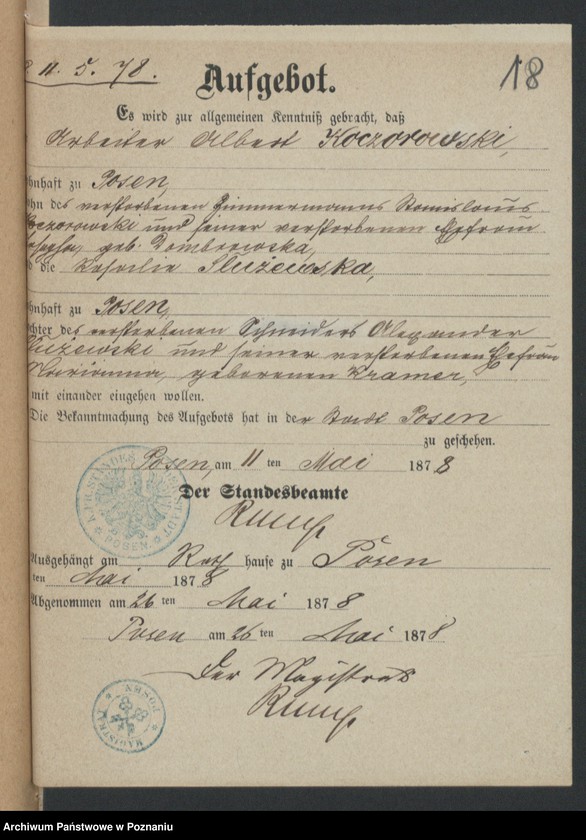 11. 5. 78.
18
Aufgebot.
Es wird zur allgemeinen Kenntniß gebracht, daß
Arbeiter Albert Koczorowski,
hnhaft zu Posen,
ohn des verstorbenen Zimmermanns Stanislaus
Koczorowski und seiner verstorbenen Ehefrau
geb. Dombrowska,
d die Kasailia Słuzewska,
hnhaft zu Posen,
chter des verstorbenen Schneiders Alexander
Słuzewski und seiner verstorbenen Ehefrau
Marianna, geborenen Kramer,
mit einander eingehen wollen.
Die Bekanntmachung des Aufgebots hat in der Stadt Posen
zu geschehen.
Posen, am 11 ten Mai 1878
Der Standesbeamte
Rump
KGL. PR. STANDESAMT STADT POSEN
Ausgehängt am Rath hause zu Posen
ten Mai 1878
Abgenommen am 26 ten Mai 1878
Posen am 26 ten Mai 1878
Der Magistrat
Rump
MAGISTRAT POSEN
Archiwum Państwowe w Poznaniu